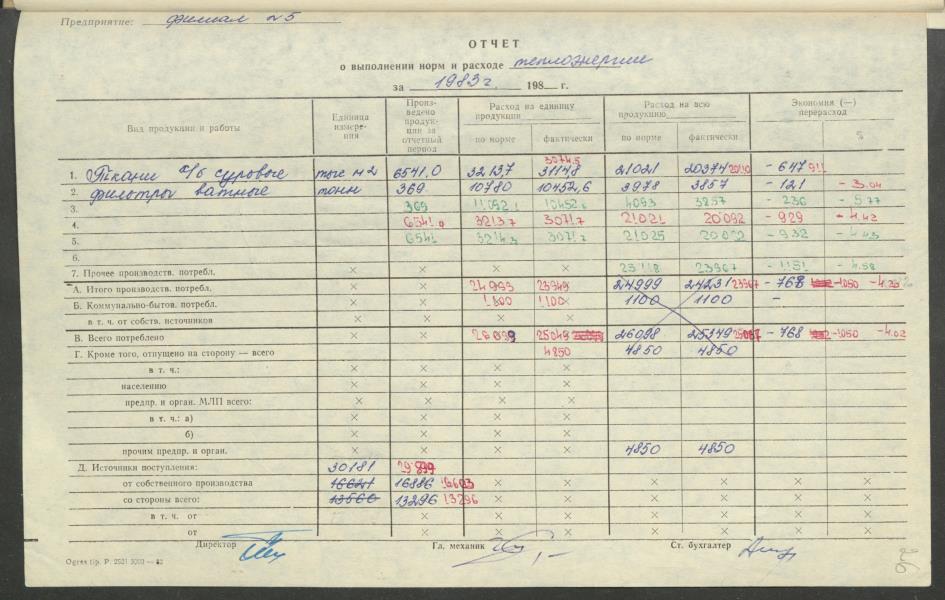 Предприятие: филиал №5
ОТЧЕТ
о выполнении норм и расходе теплоэнергии
за 1983 г. 198 г.
Вид продукции и работы
Единица измерения
Произведено продукции за отчетный период
Расход на единицу продукции
Расход на всю продукцию
Экономия (—) перерасход
по норме фактически по норме фактически %
30745
1. Ткани х/б суровые тыс м2 6541.0 32137 31148 21021 20374 - 647
2. фильтры ватные тонн 369 10780 10452,6 3978 3857 - 121 - 3.04
3. 369 4093 3857 - 236 - 5.77
4. 6541.0 32137 30717 21021 20092 - 929 - 4.42
5. 6541 21025 20092 - 932 - 4.43
6.
7. Прочее производств. потребл. × × × × 23118 23967 - 1151 - 4.58
А. Итого производств. потребл. × × 24999 24231 23967 - 768 -1050 - 4.20
Б. Коммунально-бытов. потребл. × × 1100 1100× 1100 1100 -
в т. ч. от собств. источников × × × ×
В. Всего потреблено × × 25049 26098 25349 - 768 -1050 -4.02
Г. Кроме того, отпущено на сторону — всего 4850 4850 4850
в т. ч.: × × × ×
населению × × × ×
предпр. и орган. МЛП всего: × × × ×
в т. ч.: а) × × × ×
б) × × × ×
прочим предпр. и орган. × × × × 4850 4850
Д. Источники поступления: 30181 29899
от собственного производства 16621 16886 16603 × × × ×
со стороны всего: 13560 13296 13296 × × × ×
в т. ч. от × × × × × × ×
от × × × × × × ×
Директор Гл. механик Ст. бухгалтер
Ogres tip. P. 2521 3000 — 82